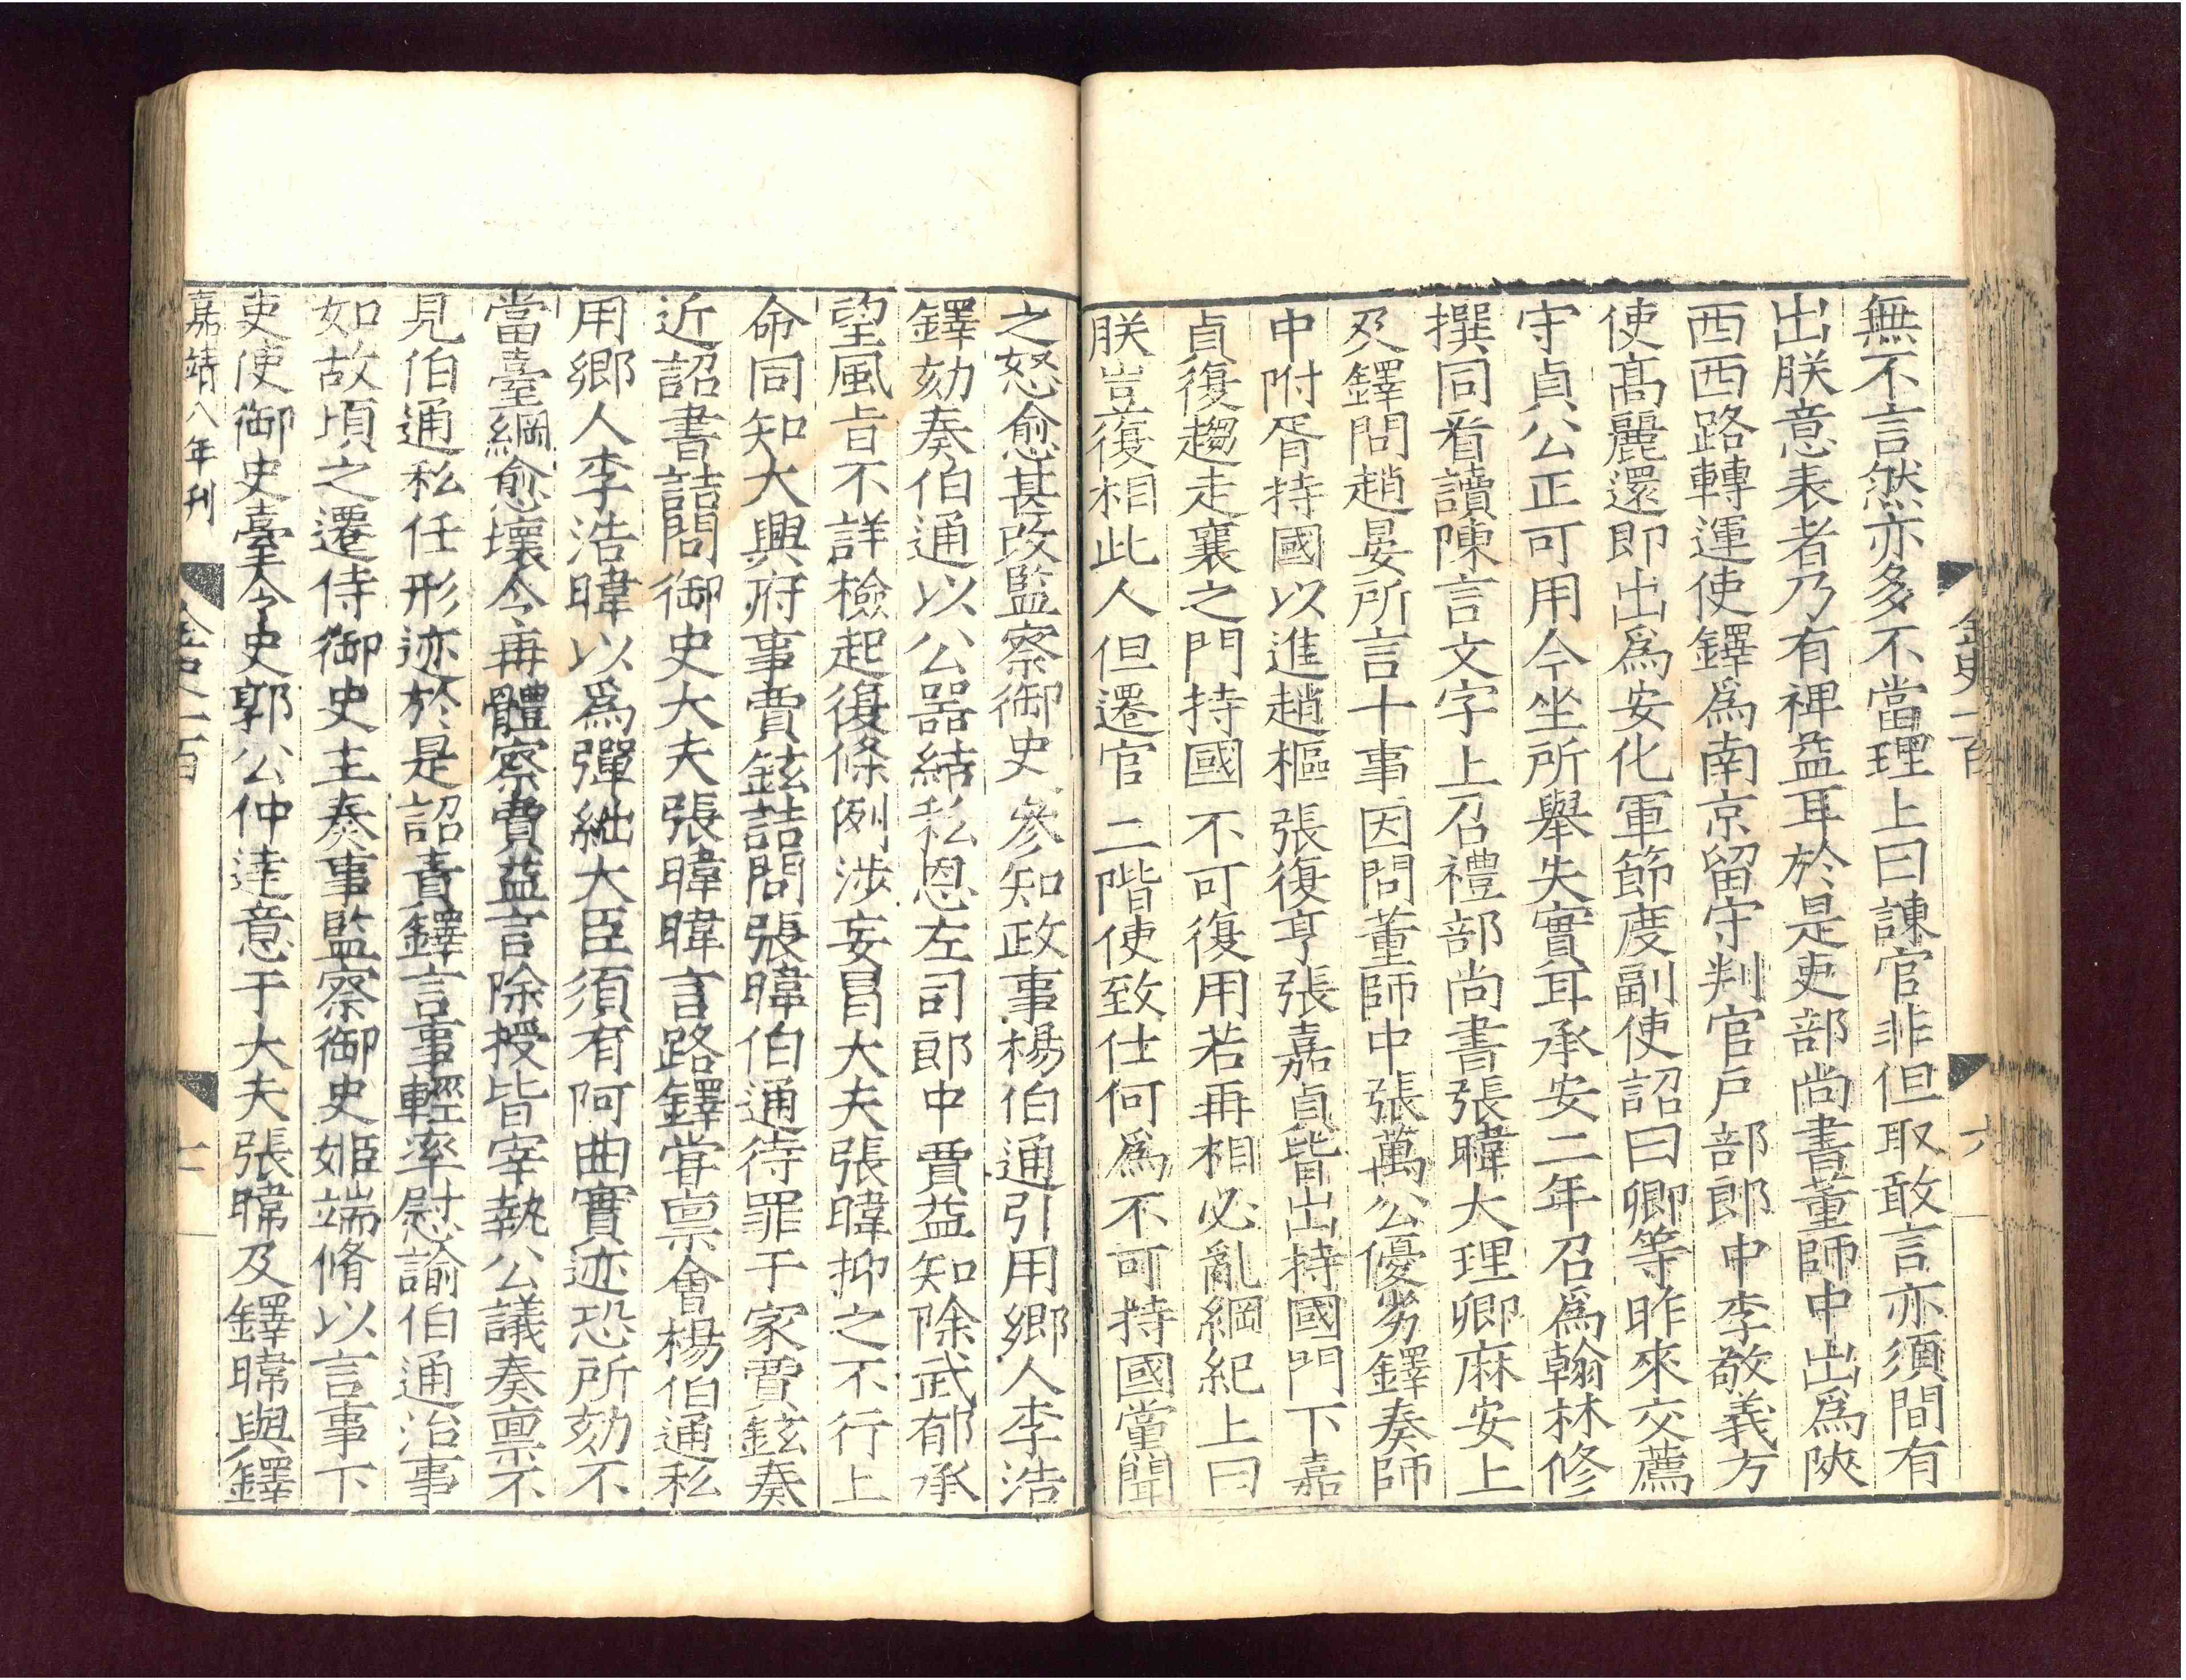 無不言然亦多不當理上曰諫官非但取敢言亦須間有
出朕意表者乃有裨益耳於是吏部尚書董師中出爲陝
西西路轉運使鐸爲南京留守判官戶部郎中李敬義方
使高麗還即出爲安化軍節度副使詔曰卿等昨來交薦
守貞公正可用今坐所舉失實耳承安二年召爲翰林修
撰同看讀陳言文字上召禮部尚書張暐大理卿麻安上
及鐸問趙晏所言十事因問董師中張萬公優劣鐸奏師
中附胥持國以進趙樞張復亨張嘉貞皆出持國門下嘉
貞復趨走襄之門持國不可復用若再相必亂綱紀上曰
朕豈復相此人但遷官二階使致仕何爲不可持國黨聞
之怒愈甚改監察御史參知政事楊伯通引用鄉人李浩
鐸劾奏伯通以公器結私恩左司郎中賈益知除武郁承
望風旨不詳檢起復條例涉妄冒大夫張暐抑之不行上
命同知大興府事賈鉉詰問張暐伯通待罪于家賈鉉奏
近詔書詰問御史大夫張暐暐言路鐸嘗稟會楊伯通私
用鄉人李浩暐以爲彈絀大臣須有阿曲實迹恐所劾不
當臺綱愈壞令再體察賈益言除授皆宰執公議奏稟不
見伯通私任形迹於是詔責鐸言事輕率慰諭伯通治事
如故頃之遷侍御史主奏事監察御史姬端脩以言事下
吏使御史臺令史郭公仲達意于大夫張暐及鐸暐與鐸
嘉靖八年刊
金史一百
六
金史一百
七